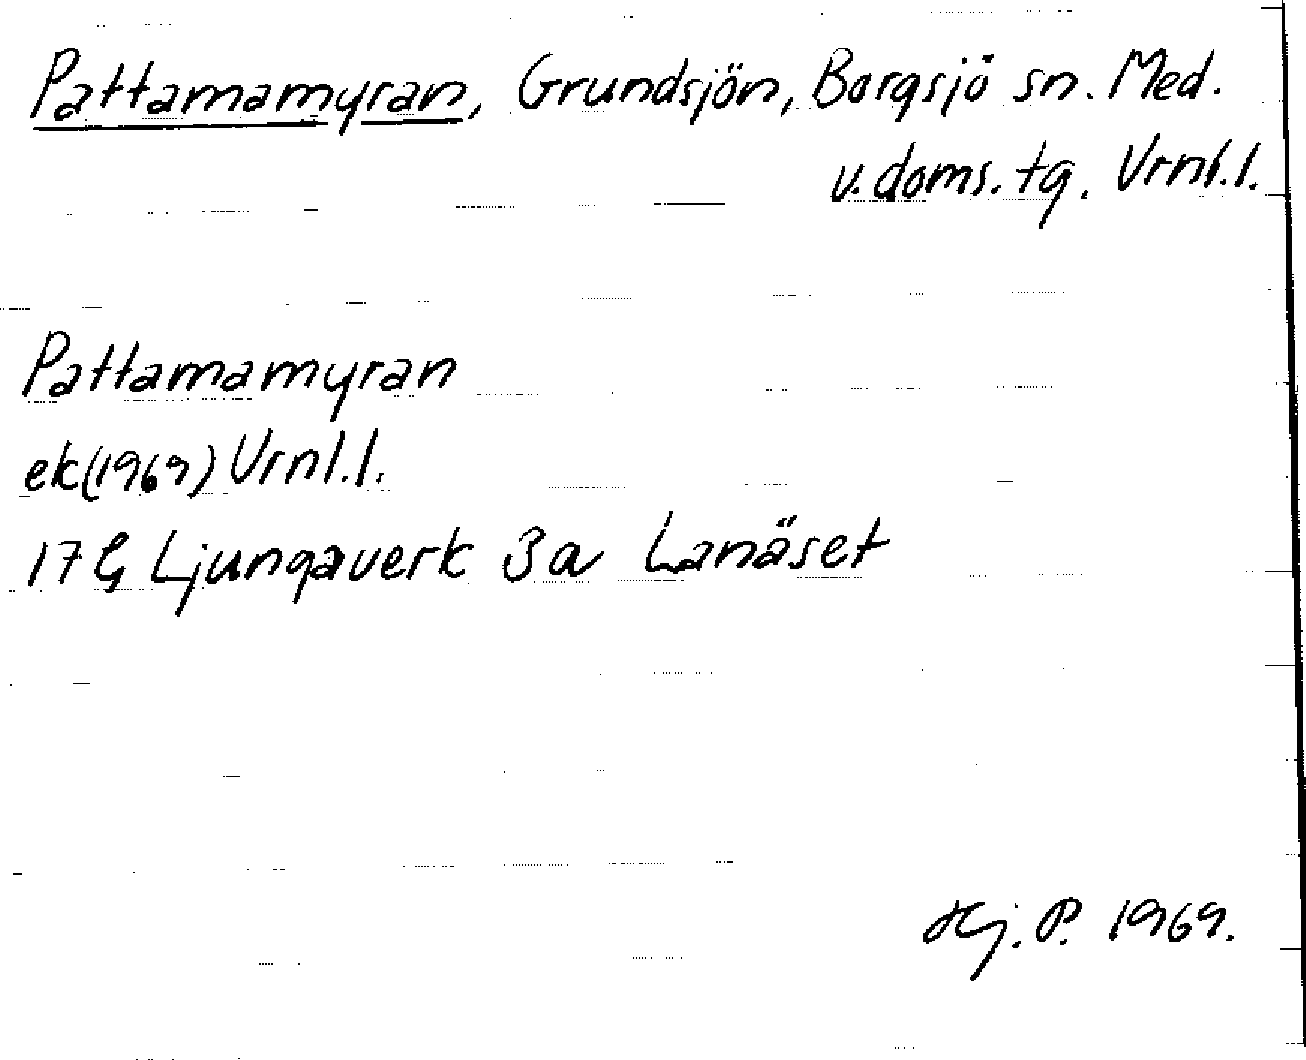 Pattamamyran, Grundsjön, Borgsjö sn. Med.
v. doms. tg. Vrnl. l.
Pattamamyran
ek (1969) Vrnl. l.
17 G Ljungaverk 3 a Lanäset
Hj. P. 1969.